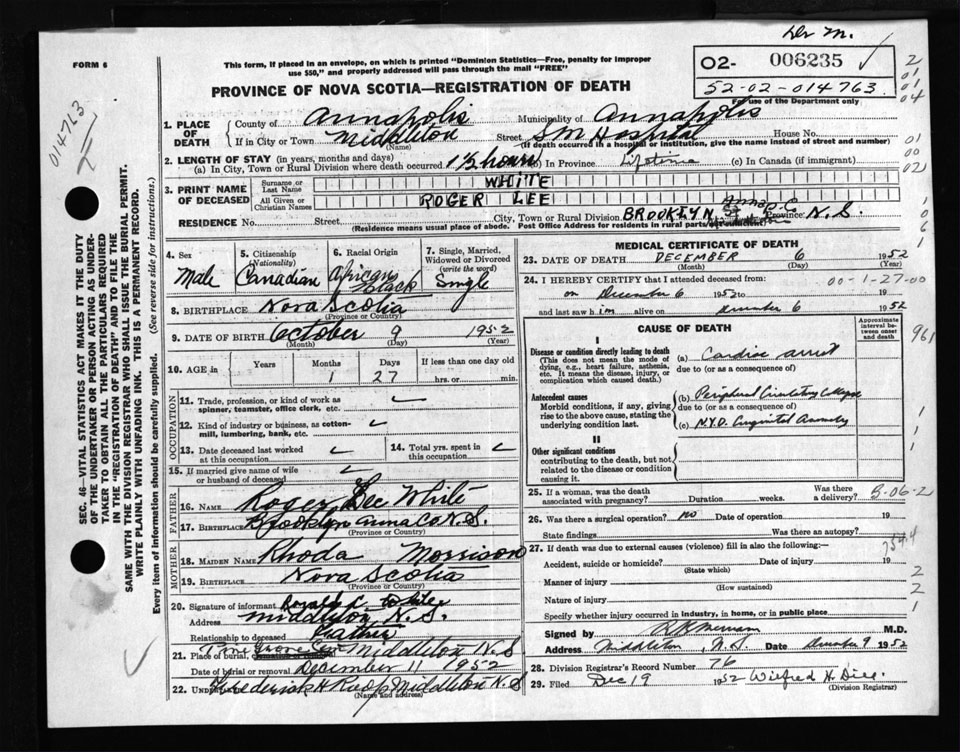 Dr M.
FORM 6
This form, if placed in an envelope, on which is printed "Dominion Statistics—Free, penalty for improper
use $50," and properly addressed will pass through the mail "FREE"
O2- 006235
52-02-014763
For use of the Department only
PROVINCE OF NOVA SCOTIA—REGISTRATION OF DEATH
014763
1. PLACE OF DEATH
County of Annapolis Municipality of Annapolis
If in City or Town Middleton Street S M Hospital House No.
(Name) (If death occurred in a hospital or institution, give the name instead of street and number)
2. LENGTH OF STAY (in years, months and days)
(a) In City, Town or Rural Division where death occurred 1½ hours (b) In Province Lifetime (c) In Canada (if immigrant)
3. PRINT NAME OF DECEASED
Surname or Last Name WHITE
All Given or Christian Names ROGER LEE
RESIDENCE No. Street City, Town or Rural Division BROOKLYN Province N.S.
(Residence means usual place of abode. Post Office Address for residents in rural parts not sufficient)
4. Sex
Male
5. Citizenship (Nationality)
Canadian
6. Racial Origin
African Black
7. Single, Married, Widowed or Divorced (write the word)
Single
8. BIRTHPLACE Nova Scotia
(Province or Country)
9. DATE OF BIRTH October 9 1952
(Month) (Day) (Year)
10. AGE in Years Months Days If less than one day old
1 27 hrs. or min.
OCCUPATION
11. Trade, profession, or kind of work as spinner, teamster, office clerk, etc.
12. Kind of industry or business, as cotton-mill, lumbering, bank, etc.
13. Date deceased last worked at this occupation
14. Total yrs. spent in this occupation
15. If married give name of wife or husband of deceased
FATHER
16. NAME Roger Lee White
17. BIRTHPLACE Brooklyn Anna Co N.S.
(Province or Country)
MOTHER
18. MAIDEN NAME Rhoda Morrison
19. BIRTHPLACE Nova Scotia
(Province or Country)
20. Signature of informant White
Address Middleton N.S.
Relationship to deceased Father
21. Place of burial, Pine Grove Middleton N.S
Date of burial or removal December 11 1952
22. Undertaker Frederick H Roop Middleton N.S
(Name and address)
MEDICAL CERTIFICATE OF DEATH
23. DATE OF DEATH DECEMBER 6 1952
(Month) (Day) (Year)
24. I HEREBY CERTIFY that I attended deceased from:
on December 6 1952 to 19
00-1-27-00
and last saw h im alive on December 6 1952
CAUSE OF DEATH
Approximate interval between onset and death
I
Disease or condition directly leading to death
(This does not mean the mode of dying, e.g., heart failure, asthenia, etc. It means the disease, injury, or complication which caused death.)
(a) Cardiac arrest
due to (or as a consequence of)
Antecedent causes
Morbid conditions, if any, giving rise to the above cause, stating the underlying condition last.
(b) Peripheral Circulatory Collapse
due to (or as a consequence of)
(c) N.Y.D. Congenital Anomaly
II
Other significant conditions
contributing to the death, but not related to the disease or condition causing it.
25. If a woman, was the death associated with pregnancy? Duration weeks. Was there a delivery?
26. Was there a surgical operation? no Date of operation 19
State findings Was there an autopsy?
27. If death was due to external causes (violence) fill in also the following:—
Accident, suicide or homicide? Date of injury 19
(State which)
Manner of injury
(How sustained)
Nature of injury
Specify whether injury occurred in industry, in home, or in public place
Signed by M.D.
Address Middleton, N.S. Date December 9 1952
28. Division Registrar's Record Number 76
29. Filed Dec 19 1952 Wilfred H.
(Division Registrar)
SEC. 46—VITAL STATISTICS ACT MAKES IT THE DUTY
OF THE UNDERTAKER OR PERSON ACTING AS UNDER-
TAKER TO OBTAIN ALL THE PARTICULARS REQUIRED
IN THE "REGISTRATION OF DEATH" AND TO FILE THE
SAME WITH THE DIVISION REGISTRAR WHO SHALL ISSUE THE BURIAL PERMIT.
WRITE PLAINLY WITH UNFADING INK. THIS IS A PERMANENT RECORD.
Every item of information should be carefully supplied. (See reverse side for instructions.)
2
01
01
04
01
00
02
1
0
6
1
961
1
1
1
2
2
1